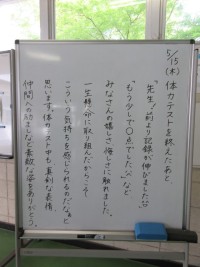 5/15(木) 体力テストを終えたあと
先生！前より記録が伸びました
"もう少しで〇点でした" など
みなさんの嬉しさ悔しさに触れました。
一生懸命に取り組んだからこそ
こういう気持ちを感じられるのだなぁと
思います。体力テスト中も真剣な表情、
仲間への励ましなど素敵な姿をありがとう。